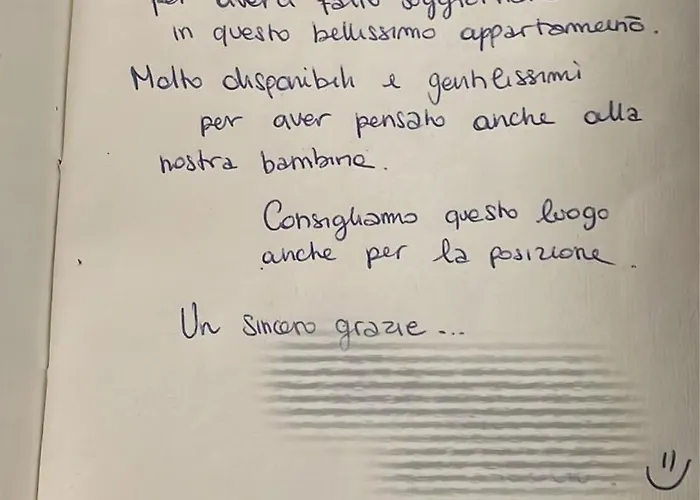 per averci fatto soggiornare
in questo bellissimo appartamento.
Molto disponibili e gentilissimi
per aver pensato anche alla
nostra bambina.
Consigliamo questo luogo
anche per la posizione.
Un sincero grazie...